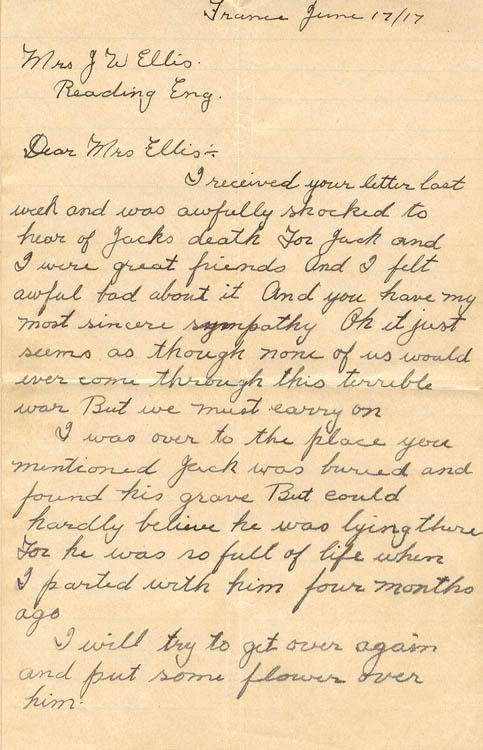 France June 17/17
Mrs J W Ellis.
Reading Eng.
Dear Mrs Ellis:-
I received your letter last
week and was awfully shocked to
hear of Jacks death For Jack and
I were great friends And I felt
awful bad about it And you have my
most sincere sympathy Oh it just
seems as though none of us would
ever come through this terrible
war But we must carry on
I was over to the place you
mentioned Jack was buried and
found his grave But could
hardly believe he was lying there
For he was so full of life when
I parted with him four months
ago
I will try to get over again
and put some flower over
him.